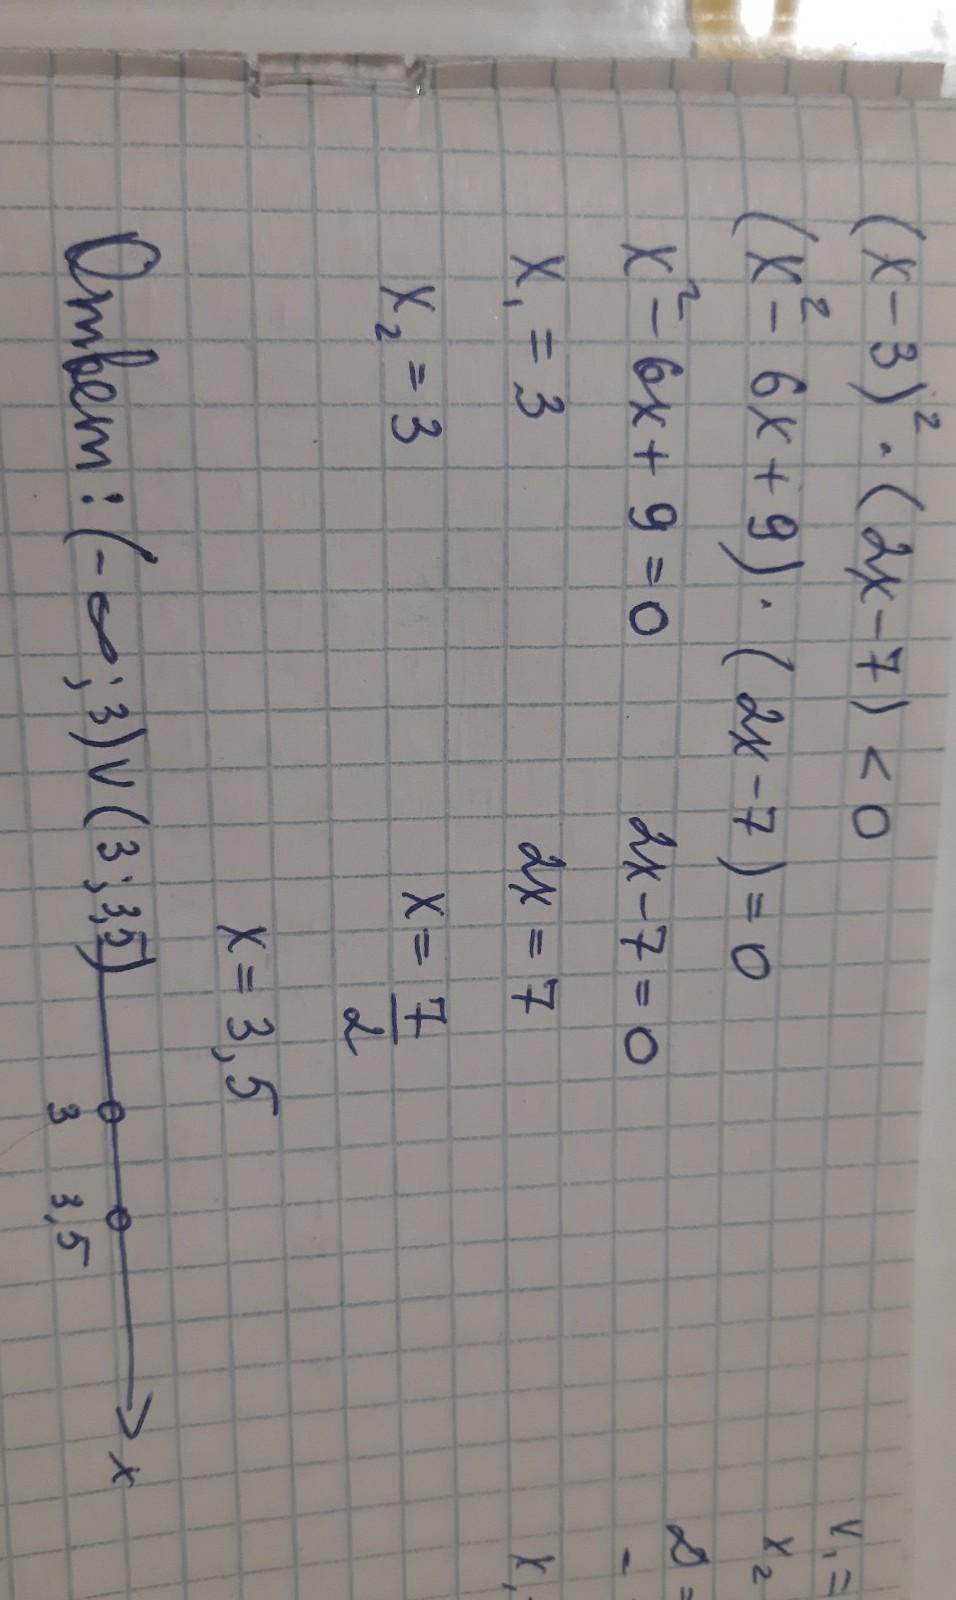 (x-3)² · (2x-7) < 0
(x² - 6x + 9) · (2x - 7) = 0
x² - 6x + 9 = 0 2x - 7 = 0
x₁ = 3 2x = 7
x₂ = 3 x = 7/2
x = 3,5
Ответ: (-∞; 3) ∪ (3; 3,5)
3 3,5 x
x₂
x₁